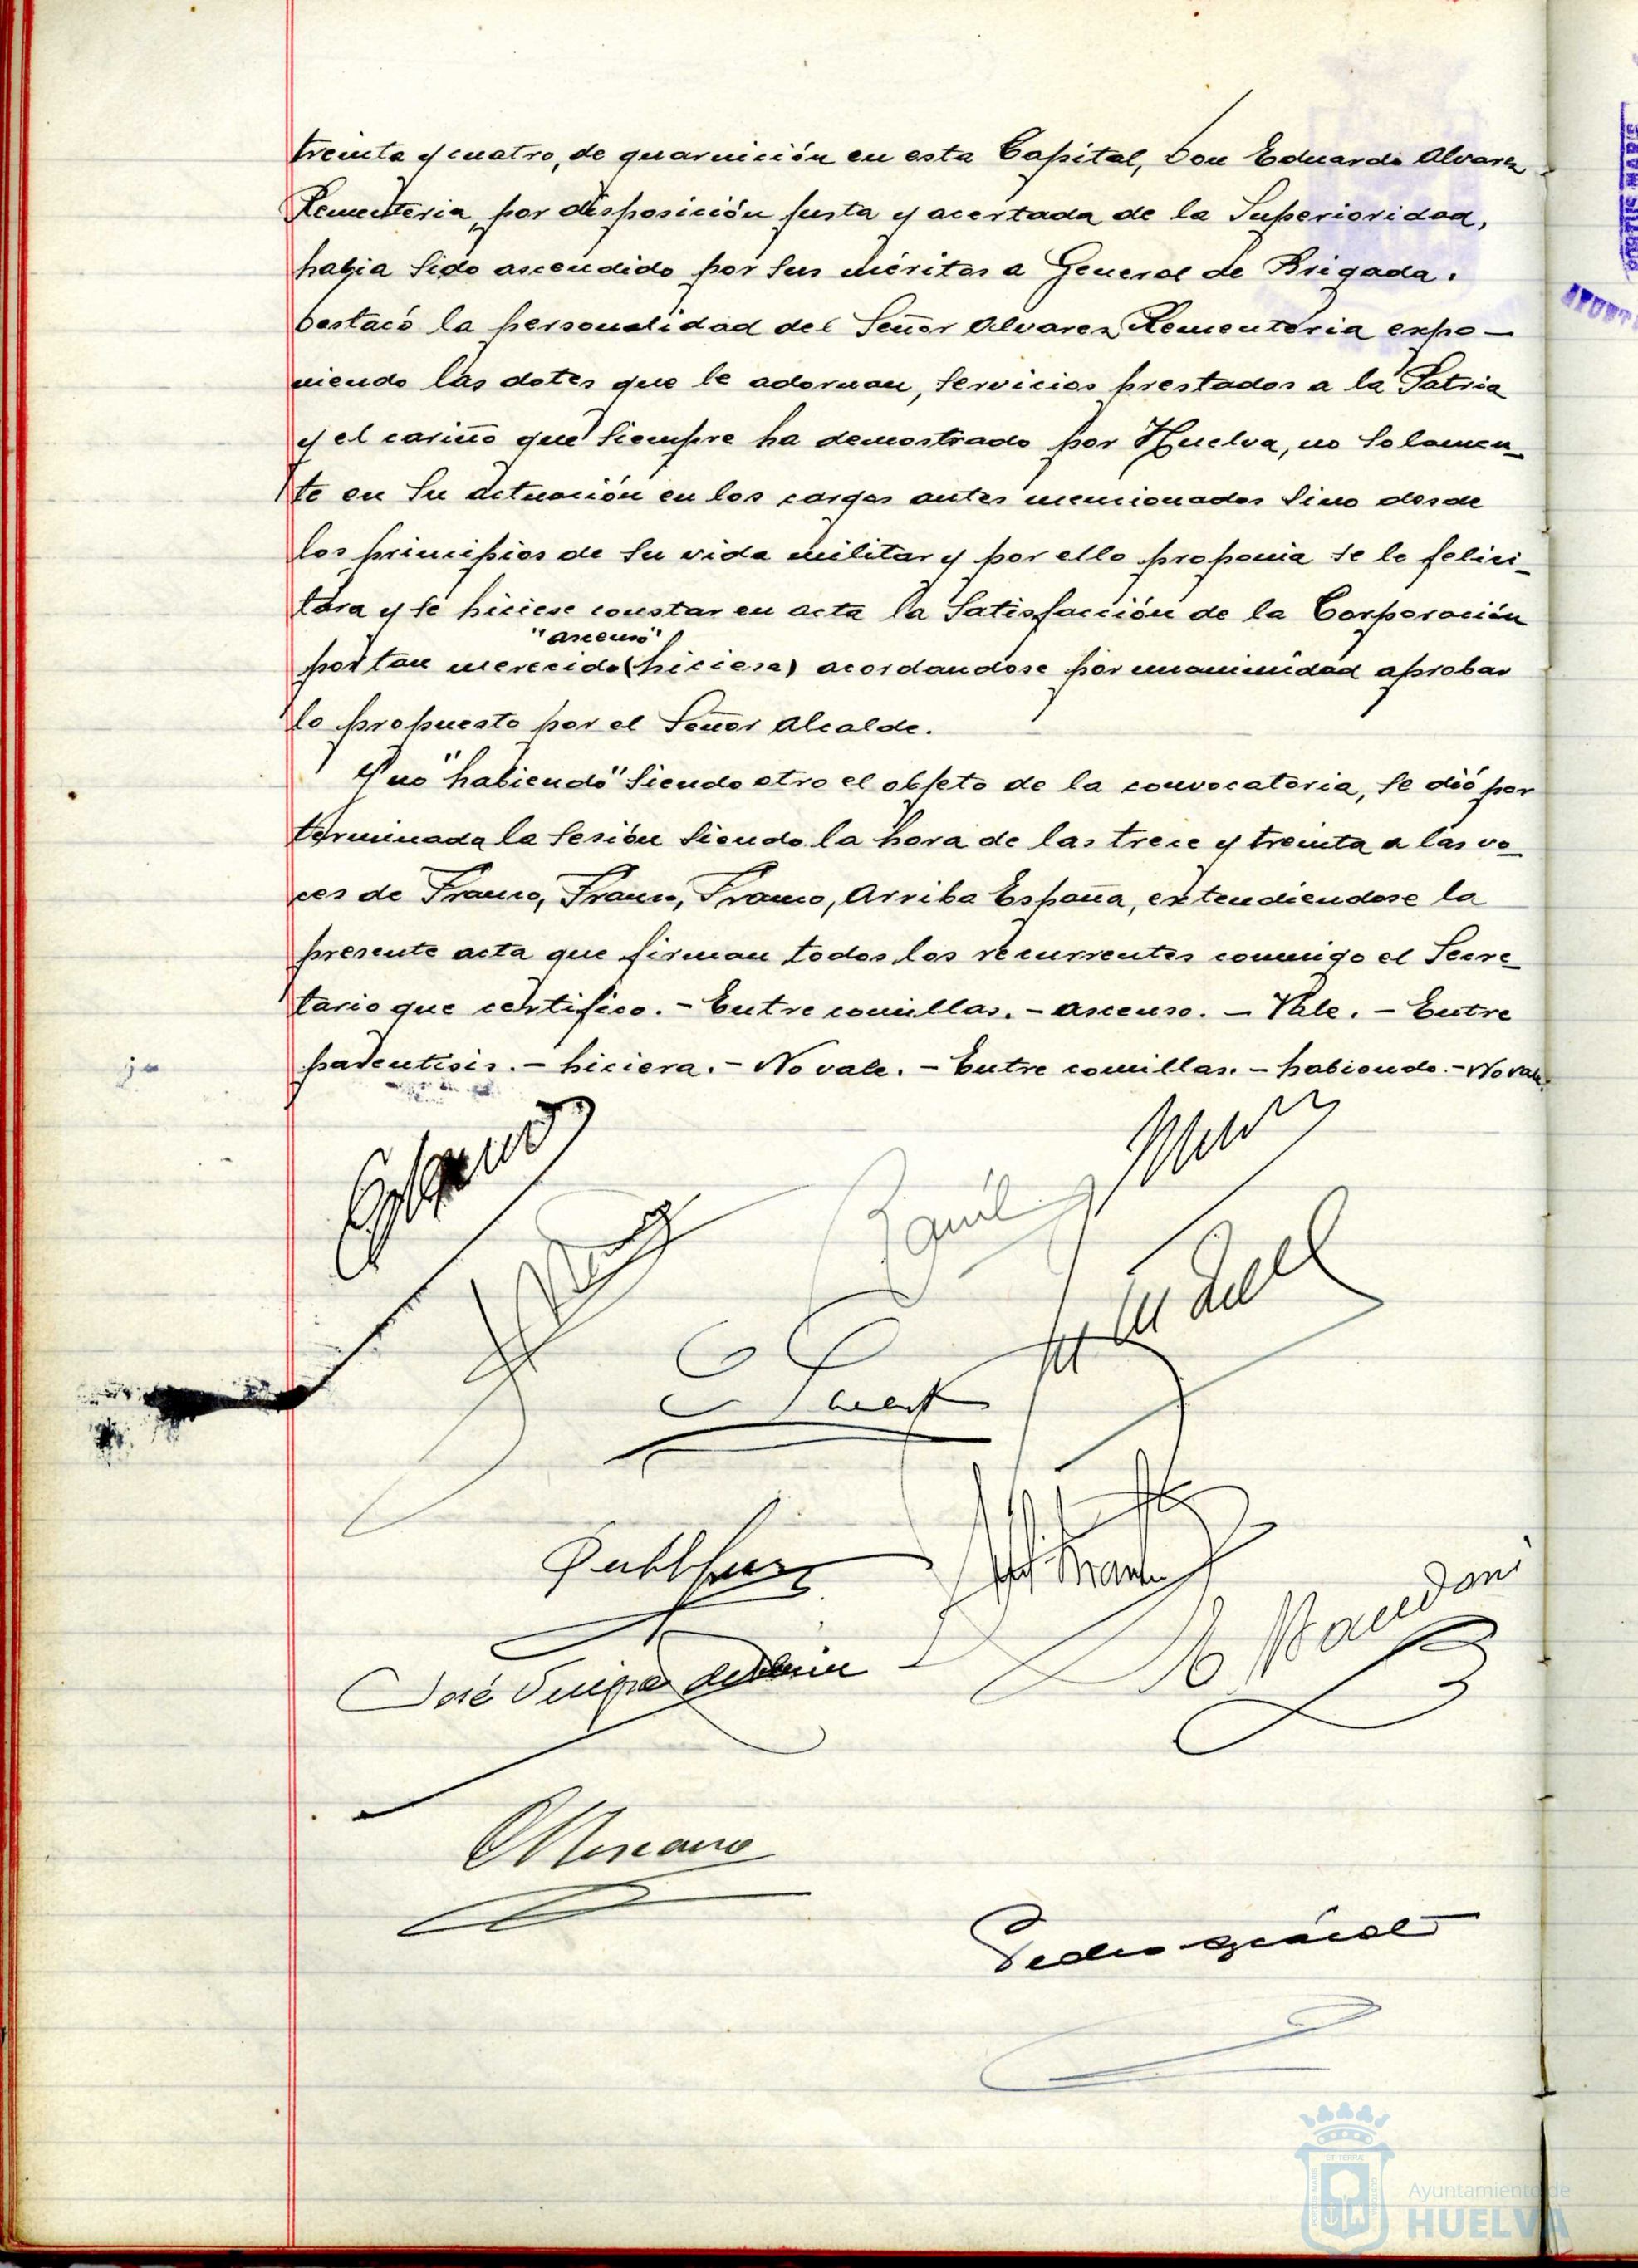 treinta y cuatro, de guarnición en esta Capital, Don Eduardo Alvarez
Rementeria, por disposición justa y acertada de la Superioridad,
habia sido ascendido por sus méritos a General de Brigada.
Destacó la personalidad del Señor Alvarez Rementeria expo-
niendo las dotes que le adornan, servicios prestados a la Patria
y el cariño que siempre ha demostrado por Huelva, no solamen-
te en su actuación en los cargos antes mencionados sino desde
los principios de su vida militar y por ello proponia se le felici-
tara y se hiciese constar en acta la satisfacción de la Corporación
"ascenso"
por tan merecido (hiciera) acordandose por unanimidad aprobar
lo propuesto por el Señor Alcalde.
Y no "habiendo" siendo otro el objeto de la convocatoria, se dió por
terminada la sesión siendo la hora de las trece y treinta a las vo-
ces de Franco, Franco, Franco, Arriba España, extendiendose la
presente acta que firman todos los recurrentes conmigo el Secre-
tario que certifico. - Entre comillas. - ascenso. - Vale. - Entre
parentisis. - hiciera. - No vale. - Entre comillas. - habiendo. - No vale.
José
Ayuntamiento de
HUELVA